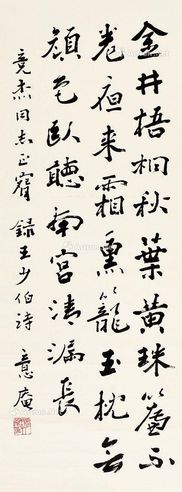 金井梧桐秋葉黃珠簾不
卷夜来霜熏籠玉枕無
顔色臥聽南宮清漏長
竟杰同志正窅 録王少伯詩 意庵